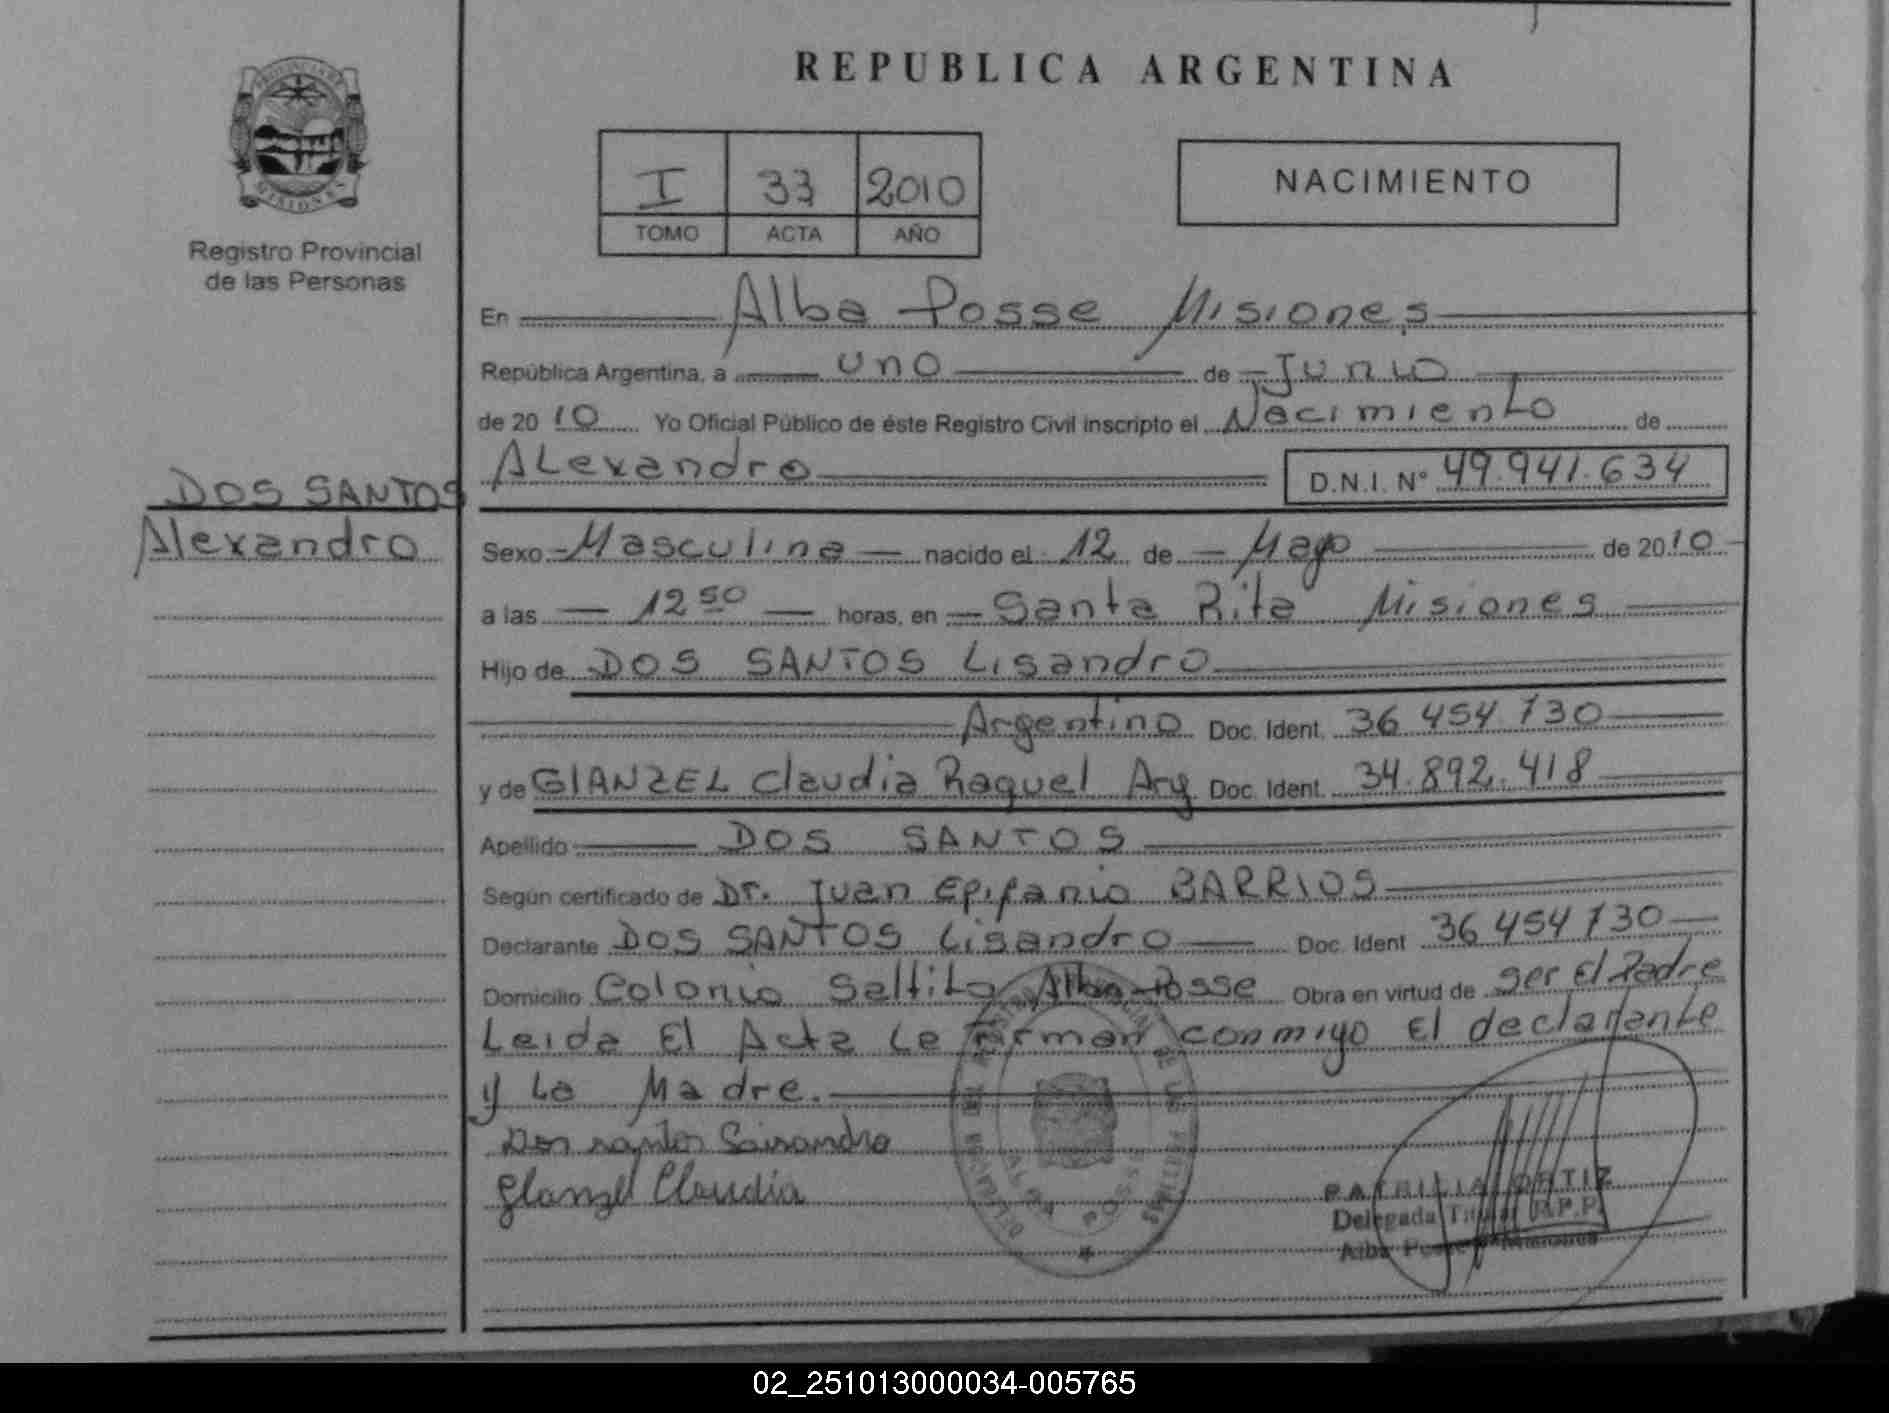 REPUBLICA ARGENTINA
PROVINCIA DE
MISIONES
Registro Provincial
de las Personas
I 33 2010
TOMO ACTA AÑO
NACIMIENTO
En Alba Posse Misiones
República Argentina, a uno de Junio
de 2010 Yo Oficial Público de éste Registro Civil inscripto el Nacimiento de
Alexandro D.N.I. N° 49.941.634
DOS SANTOS
Alexandro
Sexo Masculina nacido el 12 de Mayo de 2010
a las 12 50 horas, en Santa Rita Misiones
Hijo de DOS SANTOS Lisandro
Argentino Doc. Ident. 36 454 730
y de GLANZEL Claudia Raquel Arg Doc. Ident. 34.892.418
Apellido DOS SANTOS
Según certificado de Dr. Juan Epifanio BARRIOS
Declarante DOS SANTOS Lisandro Doc. Ident 36 454 730
Domicilio Colonia Saltito Alba Posse Obra en virtud de ser El Padre
Leida El Acta La Firman conmigo El declarante
y La Madre.
Dos santos Lisandro
Glanzel Claudia
PATRICIA ORTIZ
Delegada Titular R.P.P.
Alba Posse Misiones
02_251013000034-005765